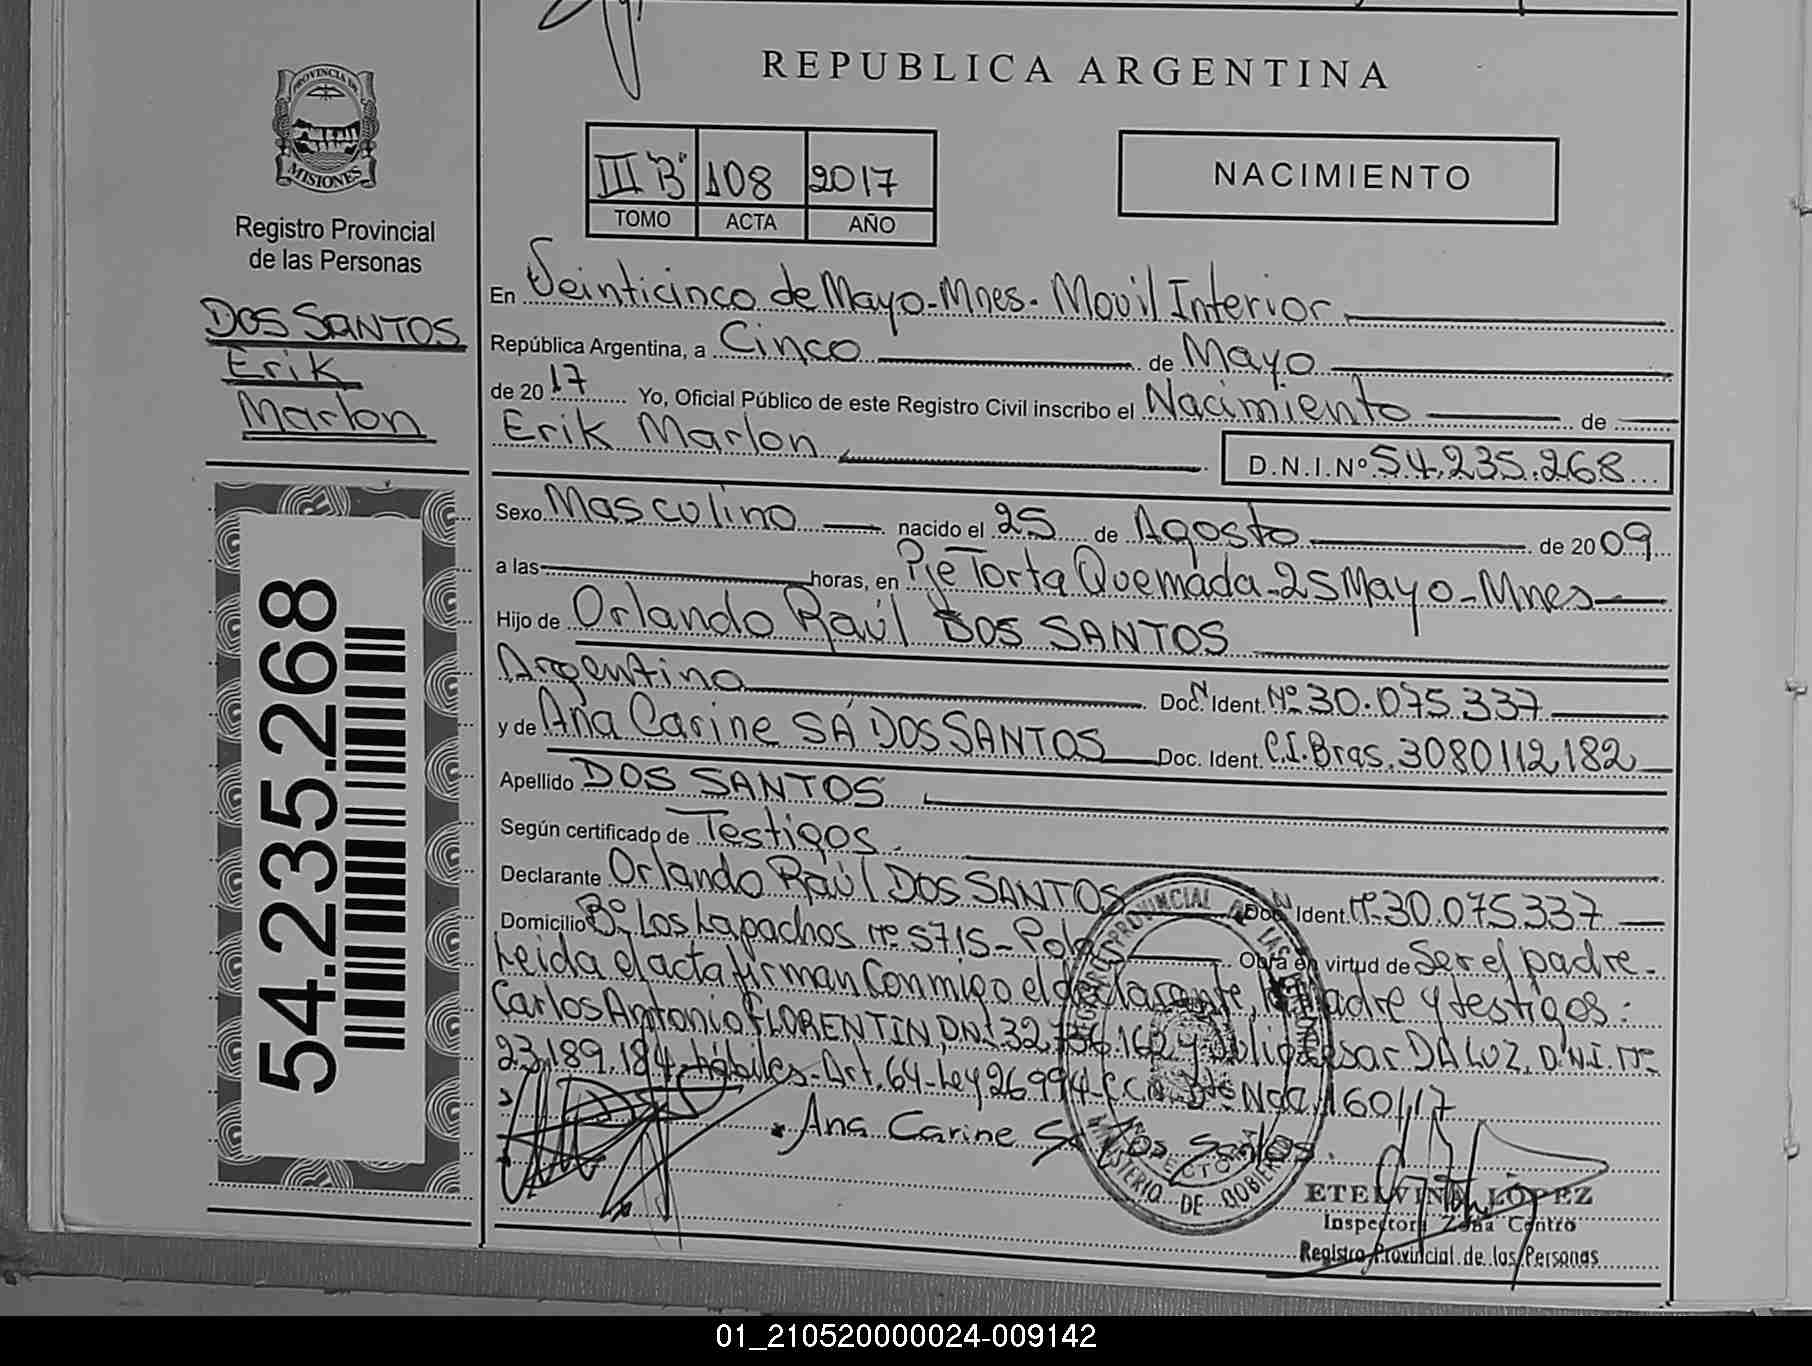 REPUBLICA ARGENTINA
PROVINCIA DE
MISIONES
Registro Provincial
de las Personas
DOS SANTOS
Erik
Marlon
54.235.268
III "B" 108 2017
TOMO ACTA AÑO
NACIMIENTO
En Veinticinco de Mayo-Mnes- Movil Interior
República Argentina, a Cinco de Mayo
de 2017 Yo, Oficial Público de este Registro Civil inscribo el Nacimiento de
Erik Marlon D.N.I.Nº 54.235.268
Sexo Masculino nacido el 25 de Agosto de 2009
a las horas, en Pje Torta Quemada-25 Mayo-Mnes
Hijo de Orlando Raúl DOS SANTOS
Argentino Doc.N Ident. Nº 30.075.337
y de Ana Carine SÁ DOS SANTOS Doc. Ident. C.I. Bras. 3080112182
Apellido DOS SANTOS
Según certificado de Testigos
Declarante Orlando Raúl DOS SANTOS Doc. Ident. Nº 30.075.337
Domicilio Bº Los Lapachos Nº 5715- Obra en virtud de Ser el padre.
Leida el acta firman Conmigo el declarante, la madre y testigos:
Carlos Antonio FLORENTIN, DNI 32.736.162 y DA LUZ, D.N.I. Nº
23.189.184 Hábiles-Art. 64-Ley 26994 Nac. 160/17
Ana Carine Sá Dos Santos
REGISTRO PROVINCIAL DE LAS PERSONAS
MINISTERIO DE GOBIERNO
ETELVINA LOPEZ
Inspectora Zona Centro
Registro Provincial de las Personas
01_210520000024-009142